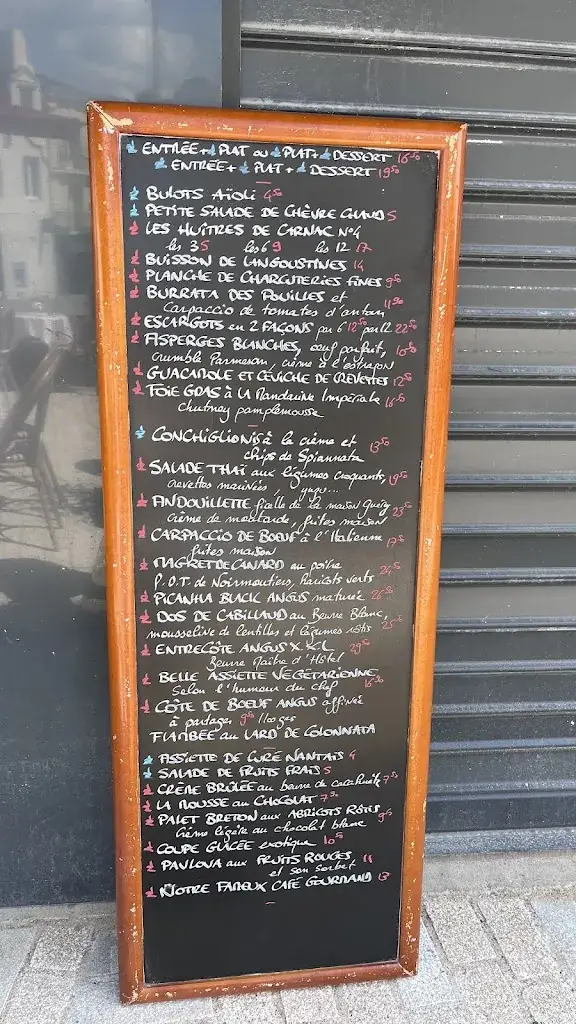 ENTRÉE + PLAT OU PLAT + DESSERT 16⁵⁰
ENTRÉE + PLAT + DESSERT 19⁵⁰
BULOTS AÏOLI 4⁵⁰
PETITE SALADE DE CHÈVRE CHAUD 5
LES HUÎTRES DE CARNAC N°4
les 3 5 les 6 9 les 12 17
BUISSON DE LANGOUSTINES 14
PLANCHE DE CHARCUTERIES FINES 9⁵⁰
BURRATA DES POUILLES et
Carpaccio de tomates d'antan 11⁹⁰
ESCARGOTS en 2 FAÇONS par 6 12⁵⁰ par 12 22⁵⁰
ASPERGES BLANCHES, œuf parfait, 10⁵⁰
crumble Parmesan, crème à l'estragon
GUACAMOLE ET CEVICHE DE CREVETTES 12⁵⁰
FOIE GRAS à la Mandarine Impériale 16⁵⁰
chutney pamplemousse
CONCHIGLIONIS à la crème et 13⁵⁰
chips de Spianata
SALADE THAÏ aux légumes croquants, 19⁵⁰
crevettes marinées, yuzu...
ANDOUILLETTE ficelle de la maison Quéry 23⁵⁰
Crème de moutarde, frites maison
CARPACCIO DE BOEUF à l'Italienne 17⁵⁰
frites maison
MAGRET DE CANARD au poivre 24⁵⁰
P.D.T. de Noirmoutiers, Haricots verts
PICANHA BLACK ANGUS maturée 26⁵⁰
DOS DE CABILLAUD au Beurre Blanc, 25⁵⁰
mousseline de lentilles et légumes rôtis
ENTRECÔTE ANGUS XXL 29⁵⁰
Beurre Maître d'Hôtel
BELLE ASSIETTE VÉGÉTARIENNE 16⁵⁰
Selon l'humeur du chef
CÔTE DE BOEUF ANGUS affinée
à partager 1100 grs
FLAMBÉE au LARD DE COLONNATA
ASSIETTE DE CURÉ NANTAIS 4
SALADE DE FRUITS FRAIS 5
CRÈME BRÛLÉE au beurre de cacahuète 7⁵⁰
LA MOUSSE au CHOCOLAT 7⁵⁰
PALET BRETON aux ABRICOTS RÔTIS 9⁵⁰
Crème légère au chocolat blanc
COUPE GLACÉE exotique 10⁵⁰
PAVLOVA aux FRUITS ROUGES 11
et son sorbet
NOTRE FAMEUX CAFÉ GOURMAND 13